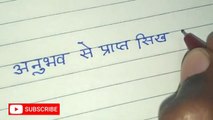 अनुभव से प्राप्त सिख
SUBSCRIBE